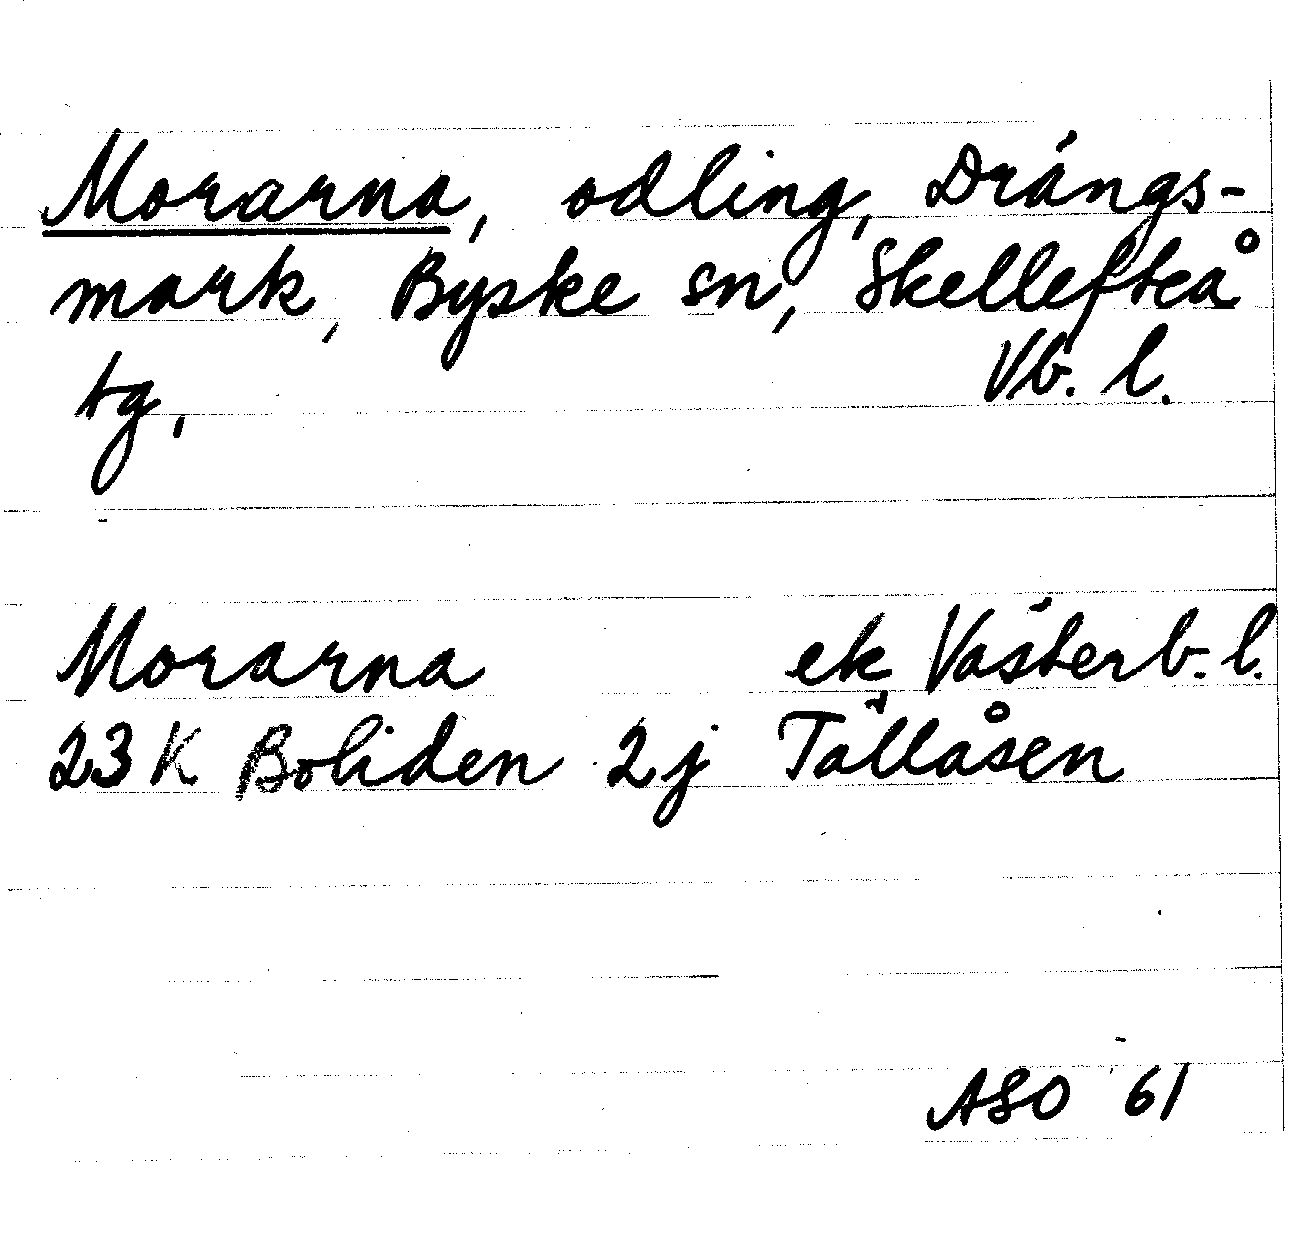 Morarna, odling, Drängs-
mark, Byske sn, Skellefteå
tg, Vb. l.
Morarna ek Västerb. l.
23 K Boliden 2j Tällåsen
ASO 61